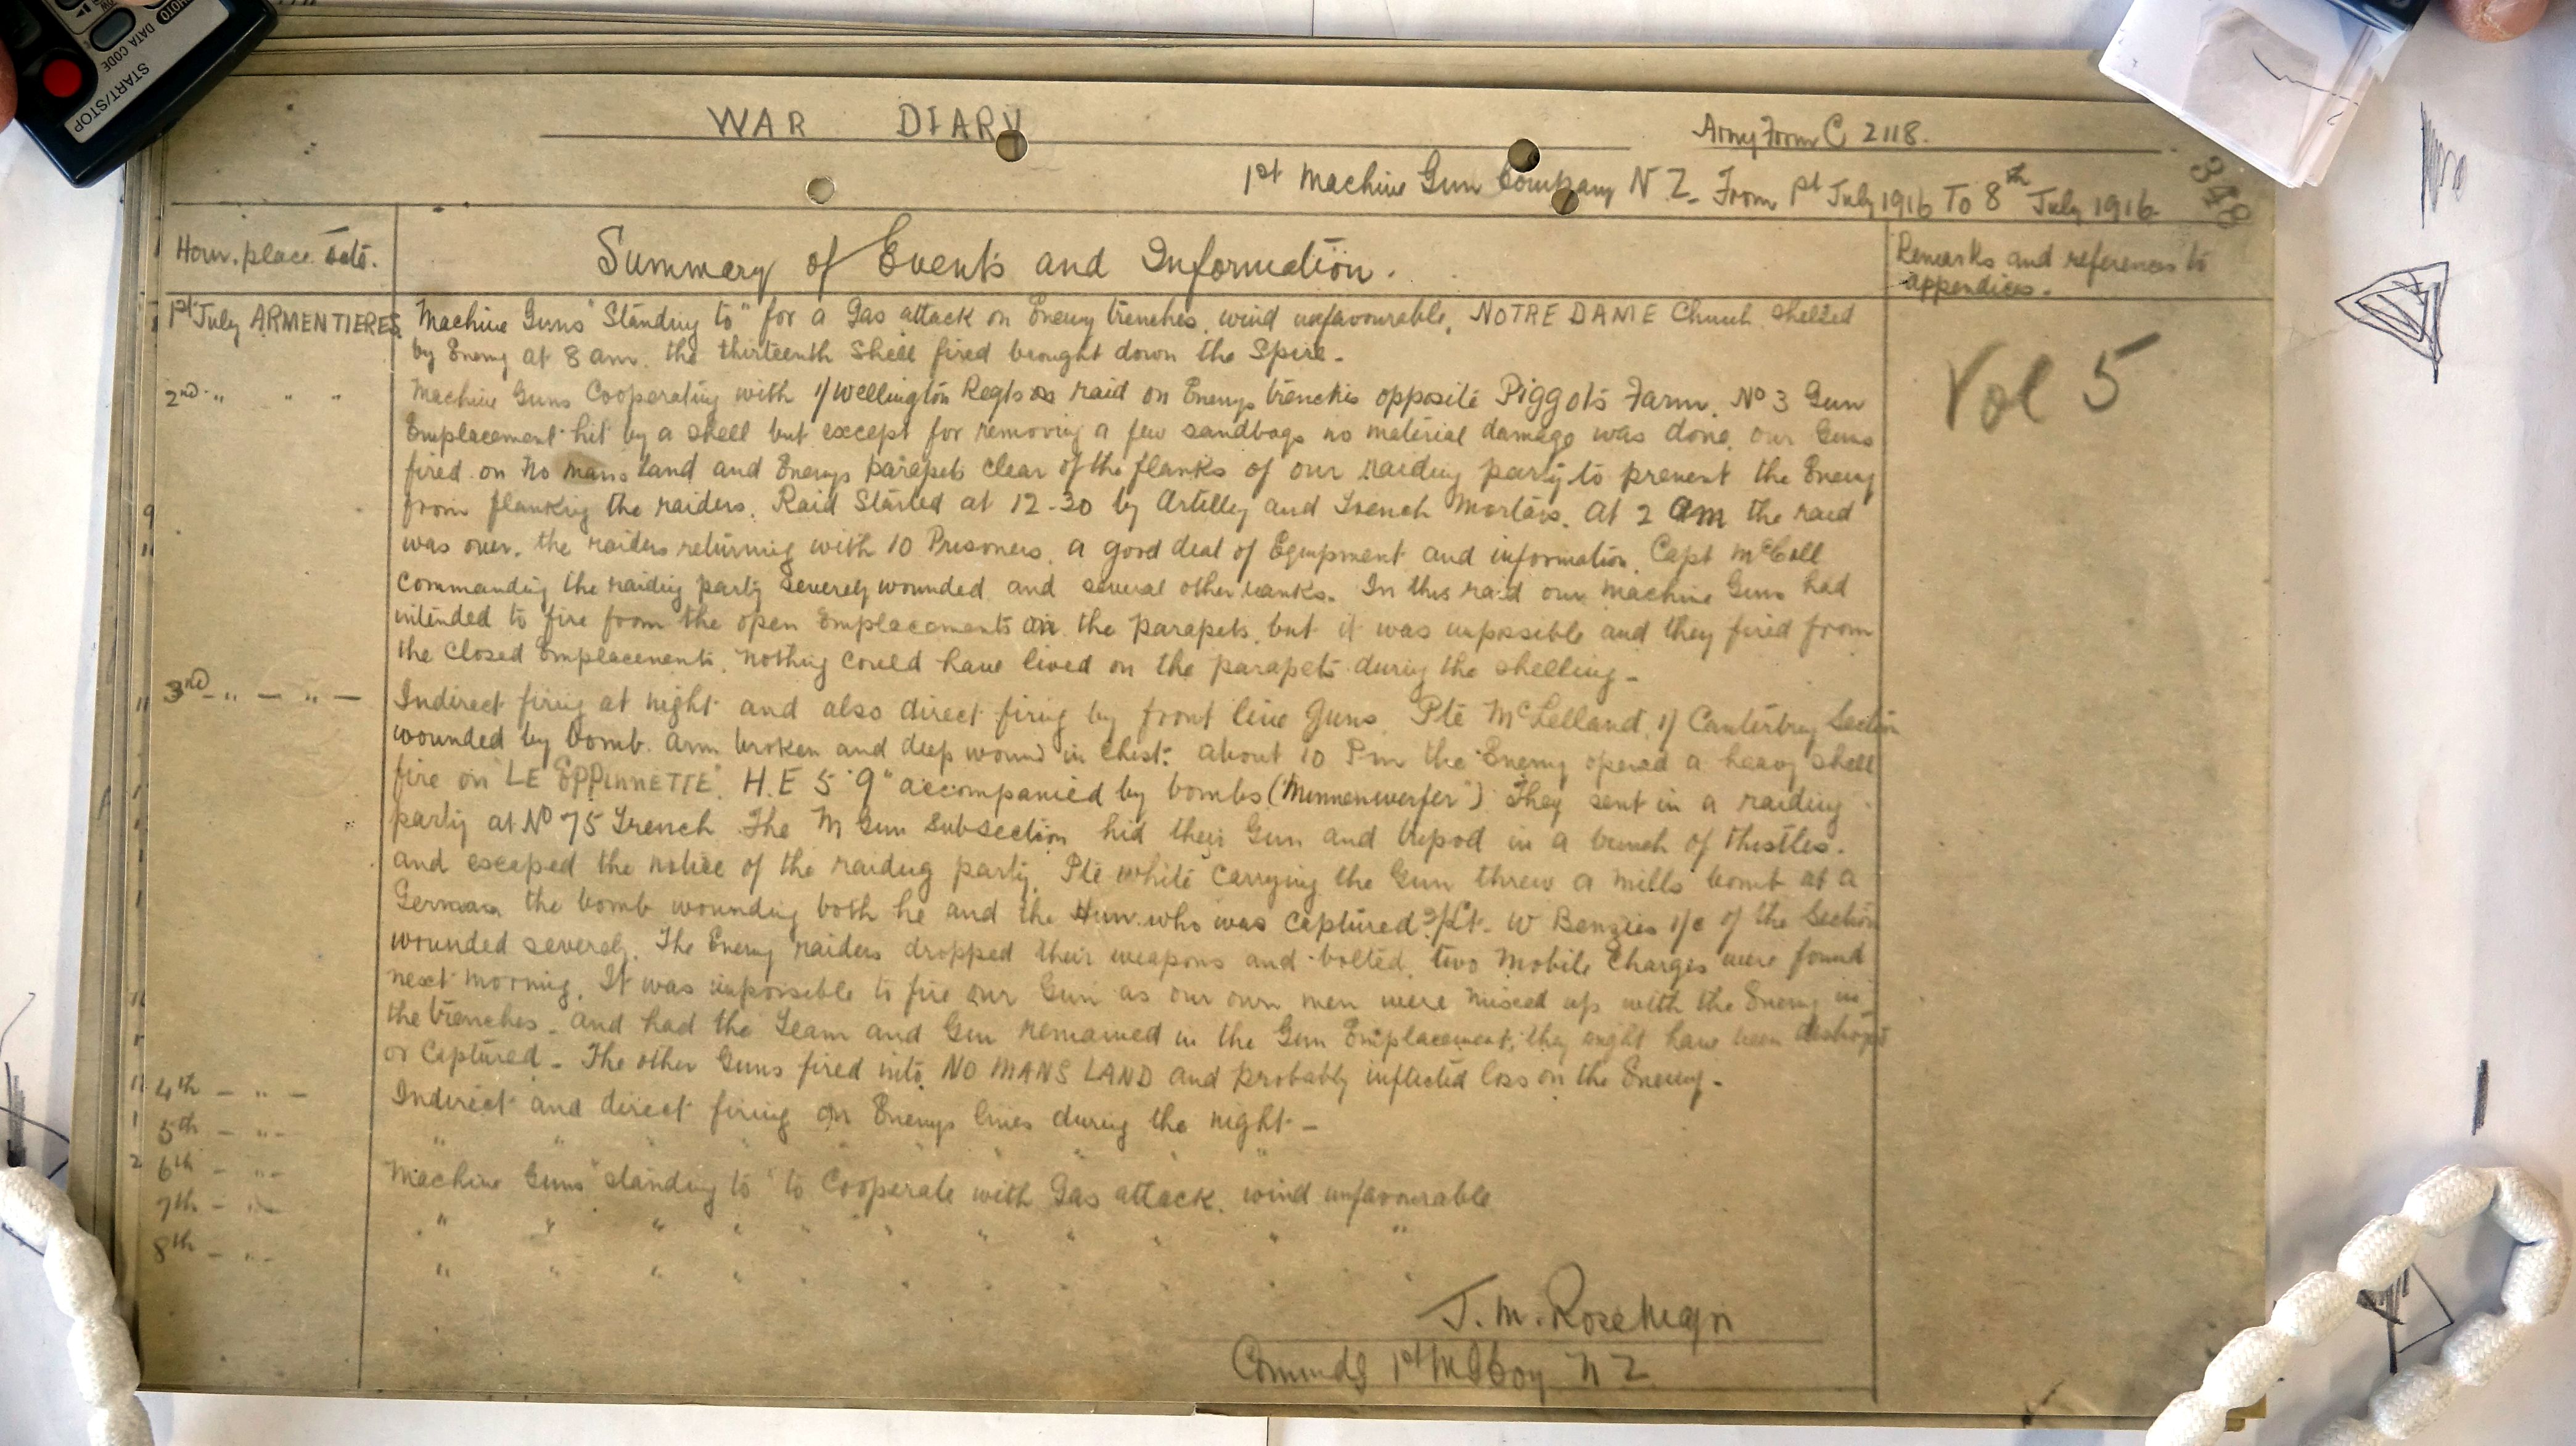 START/STOP
DATA CODE
PHOTO
WAR DIARY
Army Form C 2118.
1st Machine Gun Company N Z. From 1st July 1916 To 8th July 1916
348
Hour. place. date.
Summary of Events and Information.
Remarks and references to
appendices.
1st July ARMENTIERES
Machine Guns "Standing to" for a Gas attack on Enemy trenches, wind unfavourable, NOTRE DAME Church shelled
by Enemy at 8 am. the thirteenth Shell fired brought down the Spire.
Vol 5
2nd " " "
Machine Guns Cooperating with 1/Wellington Regts raid on Enemys trenches opposite Piggots Farm. No 3 Gun
Emplacement hit by a shell but except for removing a few sandbags no material damage was done, our Guns
fired on No mans Land and Enemys parapets clear of the flanks of our raiding party to prevent the Enemy
from flanking the raiders. Raid Started at 12-30 by Artilley and Trench Mortars. At 2 am the raid
was over. the raiders returning with 10 Prisoners, a good deal of Equipment and information. Capt McColl
Commanding the raiding party severely wounded and several other ranks. In this raid our Machine Guns had
intended to fire from the open Emplacements on the parapets, but it was impossible and they fired from
the Closed Emplacements. Nothing could have lived on the parapets during the shelling -
3rd - " - " -
Indirect firing at night and also direct firing by front line Guns. Pte McLelland, 1/ Canterbury Section
wounded by bomb. arm broken and deep wound in chest. about 10 Pm the Enemy opened a heavy shell
fire on "LE EPPINNETTE". H.E 5.9" accompanied by bombs ("Minnenwerfer") They sent in a raiding
party at No 75 Trench The M Gun Subsection hid their Gun and tripod in a bunch of thistles.
and escaped the notice of the raiding party. Pte White Carrying the Gun threw a Mills bomb at a
German the bomb wounding both he and the Hun who was captured 2/Lt. W Benzies i/c of the Section
wounded severely. The Enemy raiders dropped their weapons and bolted, two Mobile Charges were found
next morning. It was impossible to fire our Gun as our own men were mixed up with the Enemy in
the trenches - and had the Team and Gun remained in the Gun Emplacement, they might have been destroyed
or Captured - The other Guns fired into NO MANS LAND and probably inflicted loss on the Enemy -
4th - " -
Indirect and direct firing on Enemys lines during the night -
5th - " -
" " " " " " " "
6th - " -
Machine Guns "standing to" to Cooperate with Gas attack. wind unfavourable
7th - " -
" " " " " " " " " "
8th - " -
" " " " " " " " "
J. M. Rose Major
Commdg 1st M G Coy N Z